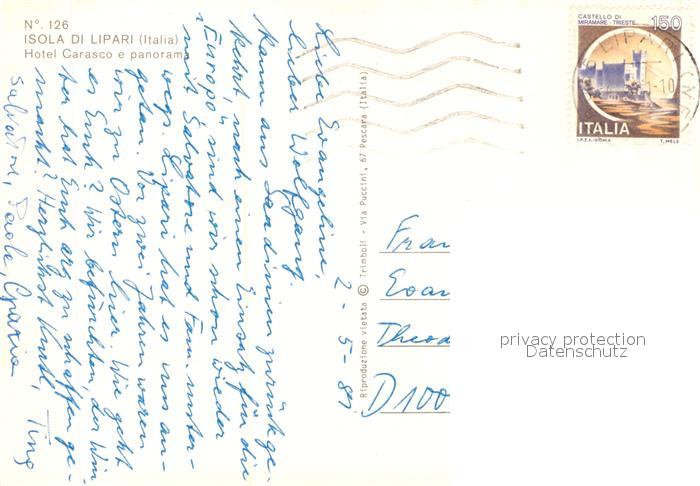 N°. 126
ISOLA DI LIPARI (Italia)
Hotel Carasco e panorama
CASTELLO DI
MIRAMARE - TRIESTE
150
LIPARI
-10
ITALIA
I.P.Z.S.-ROMA T. MELE
Riproduzione vietata © Trimboli - Via Puccini, 67 Pescara (Italia)
2-5-89
Liebe Evangeline,
lieber Wolfgang.
Kaum aus Sardinien zurückge-
kehrt, nach einem Einsatz für die
"Europa", sind wir schon wieder
mit Salvatore und Fam. unter-
wegs. Lipari hat es uns an-
getan. Vor zwei Jahren waren
wir zu Ostern hier. Wie geht
es Euch? Wir befürchten, der Win-
ter hat Euch arg zu schaffen ge-
macht? Herzlichst
Salvatore, Paola,
Frau
Evan
Theod
D 100
privacy protection
Datenschutz